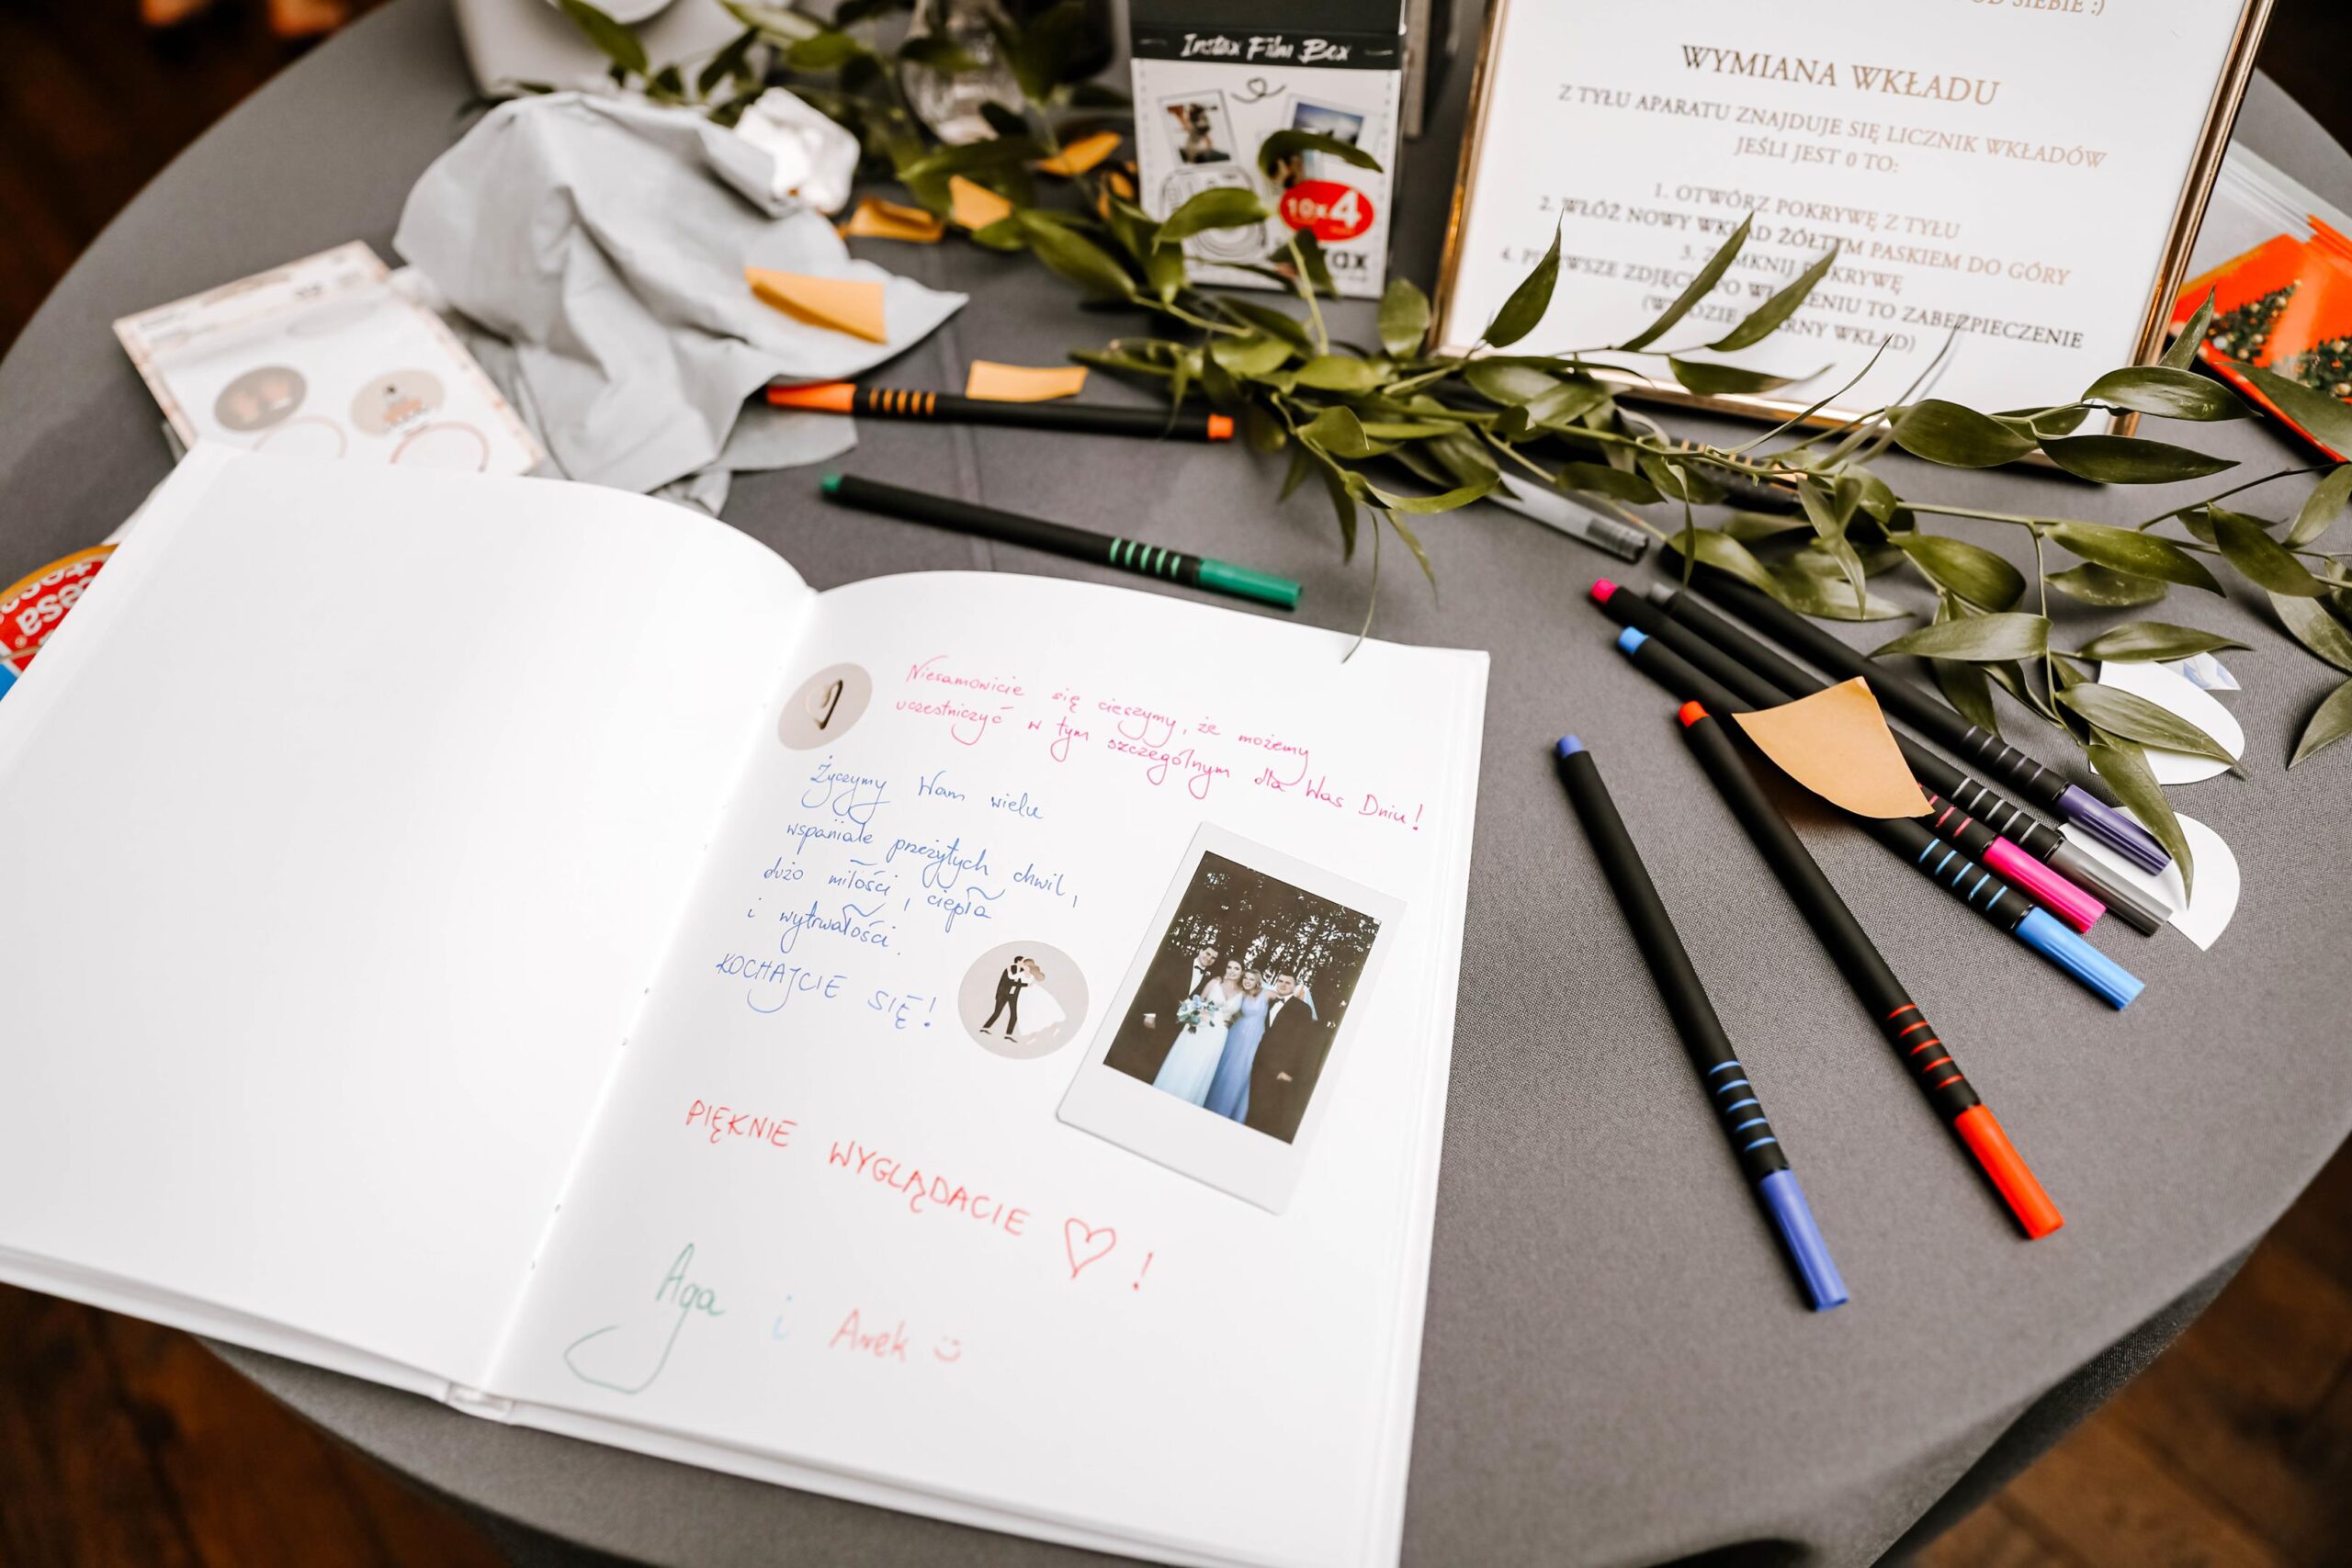 OD SIEBIE :)
WYMIANA WKŁADU
Z TYŁU APARATU ZNAJDUJE SIĘ LICZNIK WKŁADÓW
JEŚLI JEST 0 TO:
1. OTWÓRZ POKRYWĘ Z TYŁU
2. WŁÓŻ NOWY WKŁAD ŻÓŁTYM PASKIEM DO GÓRY
3. ZAMKNIJ POKRYWĘ
4. PIERWSZE ZDJĘCIE PO WŁOŻENIU TO ZABEZPIECZENIE
(WYJDZIE CZARNY WKŁAD)
Instax Film Box
10x4
tesa
Niesamowicie się cieszymy, że możemy
uczestniczyć w tym szczególnym dla Was Dniu!
Życzymy Wam wielu
wspaniale przeżytych chwil,
dużo miłości, ciepła
i wytrwałości.
KOCHAJCIE SIĘ!
PIĘKNIE WYGLĄDACIE ♡!
Aga i Arek :)